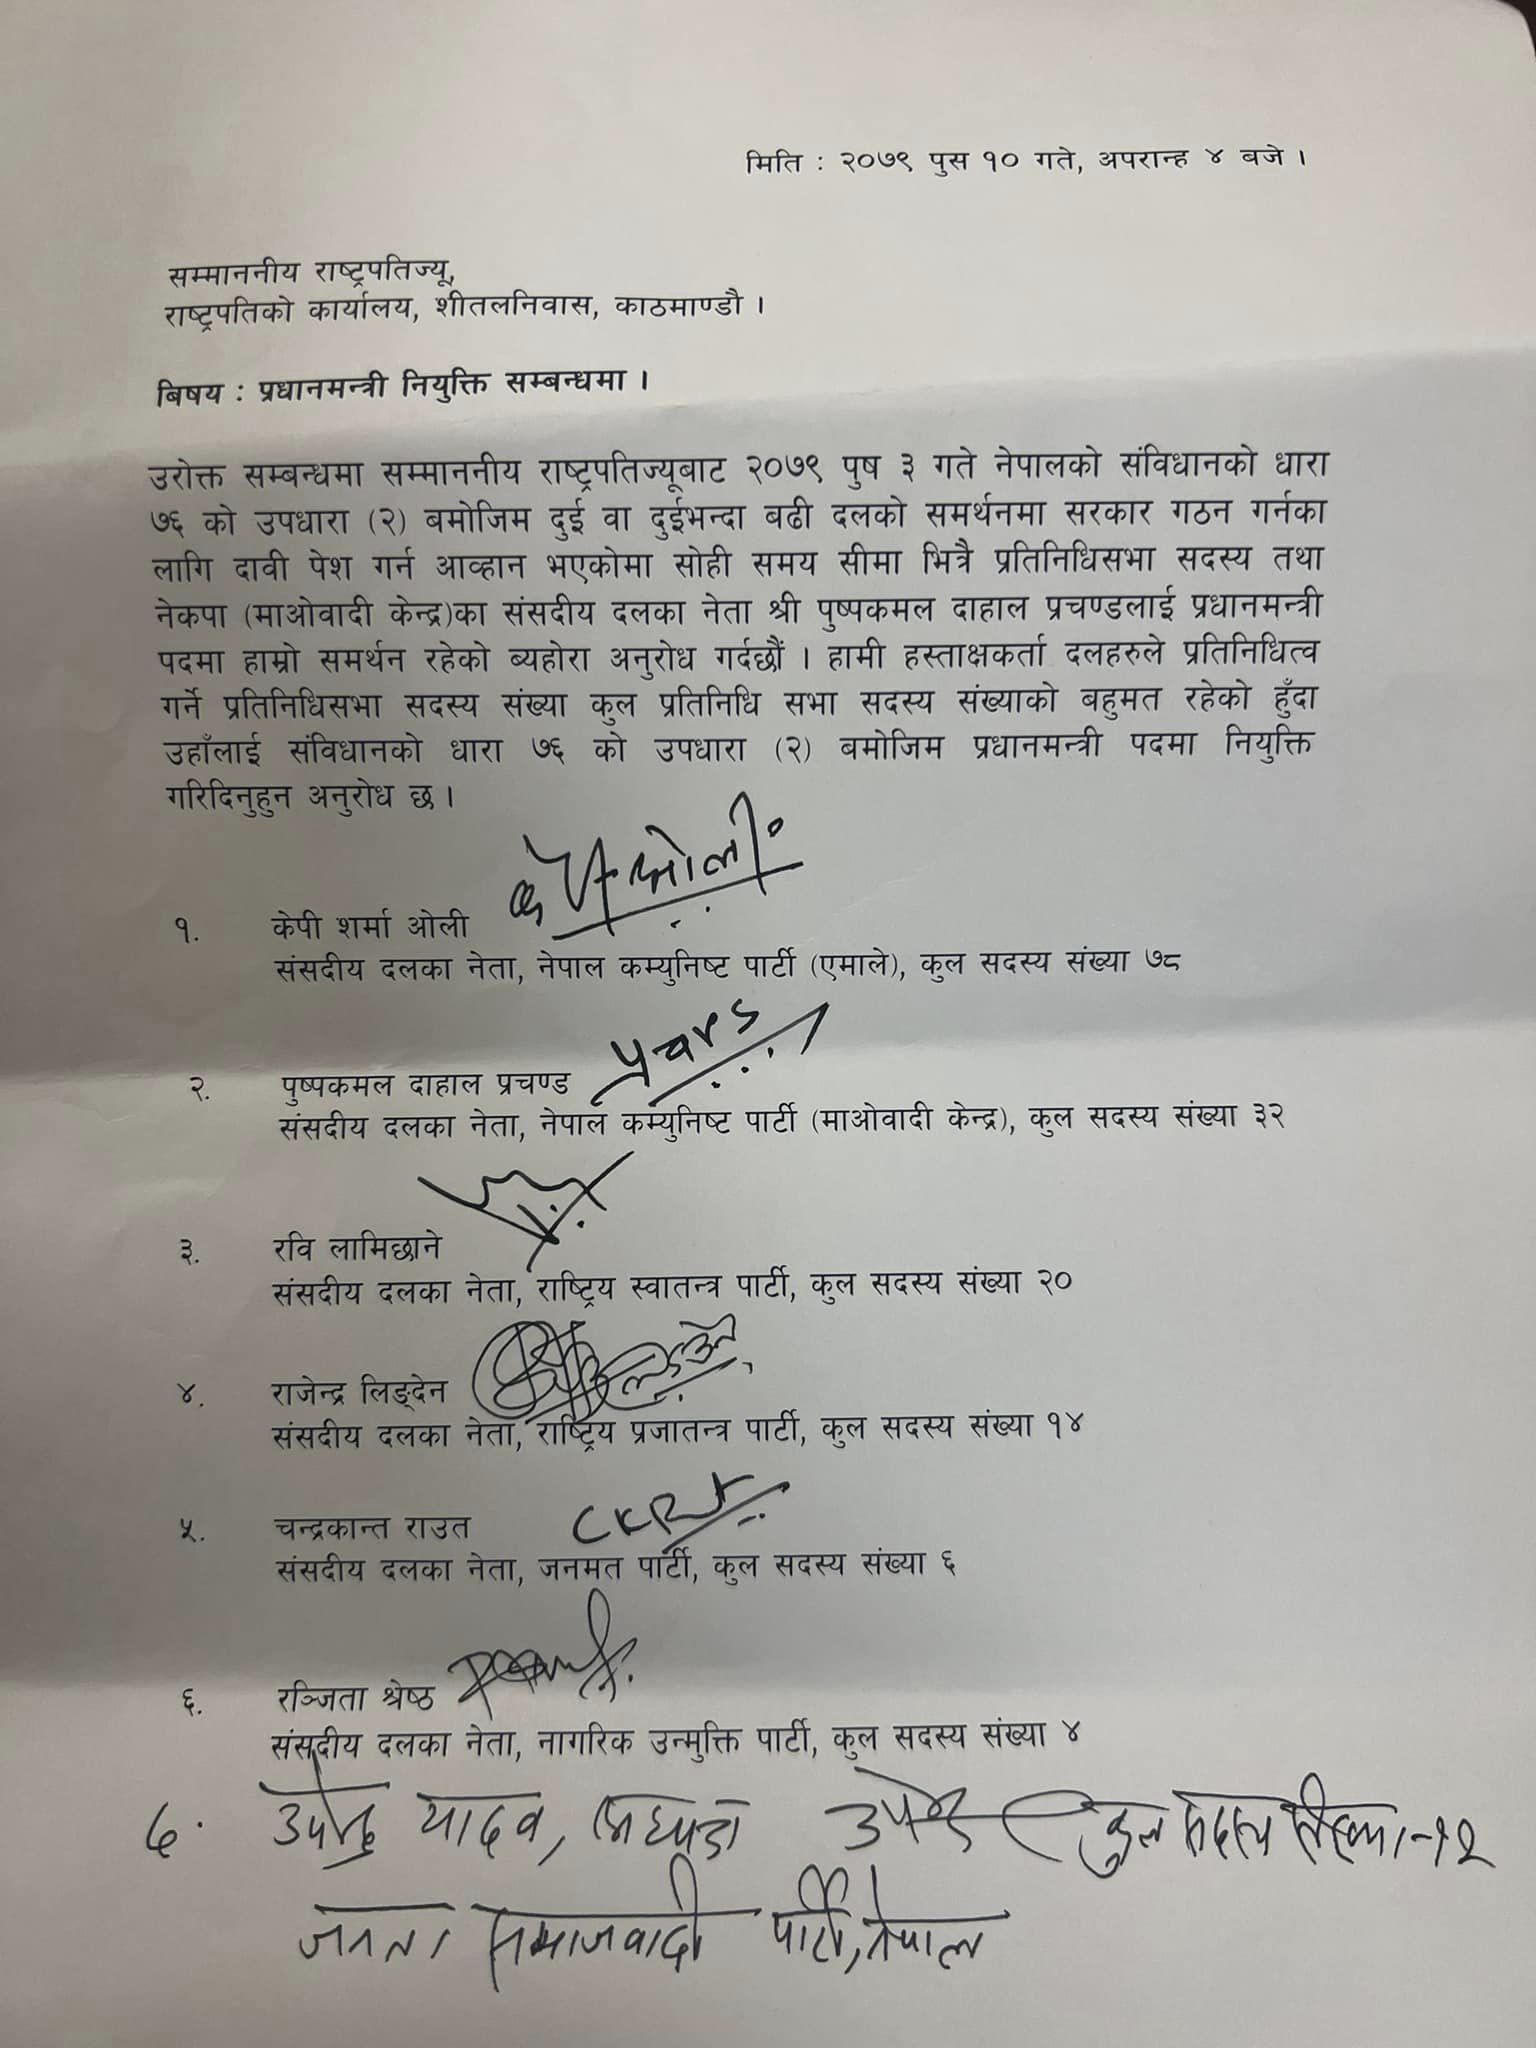 मिति : २०७९ पुस १० गते, अपरान्ह ४ बजे ।
सम्माननीय राष्ट्रपतिज्यू,
राष्ट्रपतिको कार्यालय, शीतलनिवास, काठमाण्डौ ।
बिषय : प्रधानमन्त्री नियुक्ति सम्बन्धमा ।
उरोक्त सम्बन्धमा सम्माननीय राष्ट्रपतिज्यूबाट २०७९ पुष ३ गते नेपालको संविधानको धारा
७६ को उपधारा (२) बमोजिम दुई वा दुईभन्दा बढी दलको समर्थनमा सरकार गठन गर्नका
लागि दावी पेश गर्न आव्हान भएकोमा सोही समय सीमा भित्रै प्रतिनिधिसभा सदस्य तथा
नेकपा (माओवादी केन्द्र)का संसदीय दलका नेता श्री पुष्पकमल दाहाल प्रचण्डलाई प्रधानमन्त्री
पदमा हाम्रो समर्थन रहेको ब्यहोरा अनुरोध गर्दछौं । हामी हस्ताक्षकर्ता दलहरुले प्रतिनिधित्व
गर्ने प्रतिनिधिसभा सदस्य संख्या कुल प्रतिनिधि सभा सदस्य संख्याको बहुमत रहेको हुँदा
उहाँलाई संविधानको धारा ७६ को उपधारा (२) बमोजिम प्रधानमन्त्री पदमा नियुक्ति
गरिदिनुहुन अनुरोध छ ।
के पी ओली
१. केपी शर्मा ओली
संसदीय दलका नेता, नेपाल कम्युनिष्ट पार्टी (एमाले), कुल सदस्य संख्या ७८
२. पुष्पकमल दाहाल प्रचण्ड
संसदीय दलका नेता, नेपाल कम्युनिष्ट पार्टी (माओवादी केन्द्र), कुल सदस्य संख्या ३२
३. रवि लामिछाने
संसदीय दलका नेता, राष्ट्रिय स्वातन्त्र पार्टी, कुल सदस्य संख्या २०
४. राजेन्द्र लिङ्देन
संसदीय दलका नेता, राष्ट्रिय प्रजातन्त्र पार्टी, कुल सदस्य संख्या १४
५. चन्द्रकान्त राउत
संसदीय दलका नेता, जनमत पार्टी, कुल सदस्य संख्या ६
६. रञ्जिता श्रेष्ठ
संसदीय दलका नेता, नागरिक उन्मुक्ति पार्टी, कुल सदस्य संख्या ४
७. उपेन्द्र यादव, अध्यक्ष उपेन्द्र कुल सदस्य संख्या-१२
जनता समाजवादी पार्टी, नेपाल